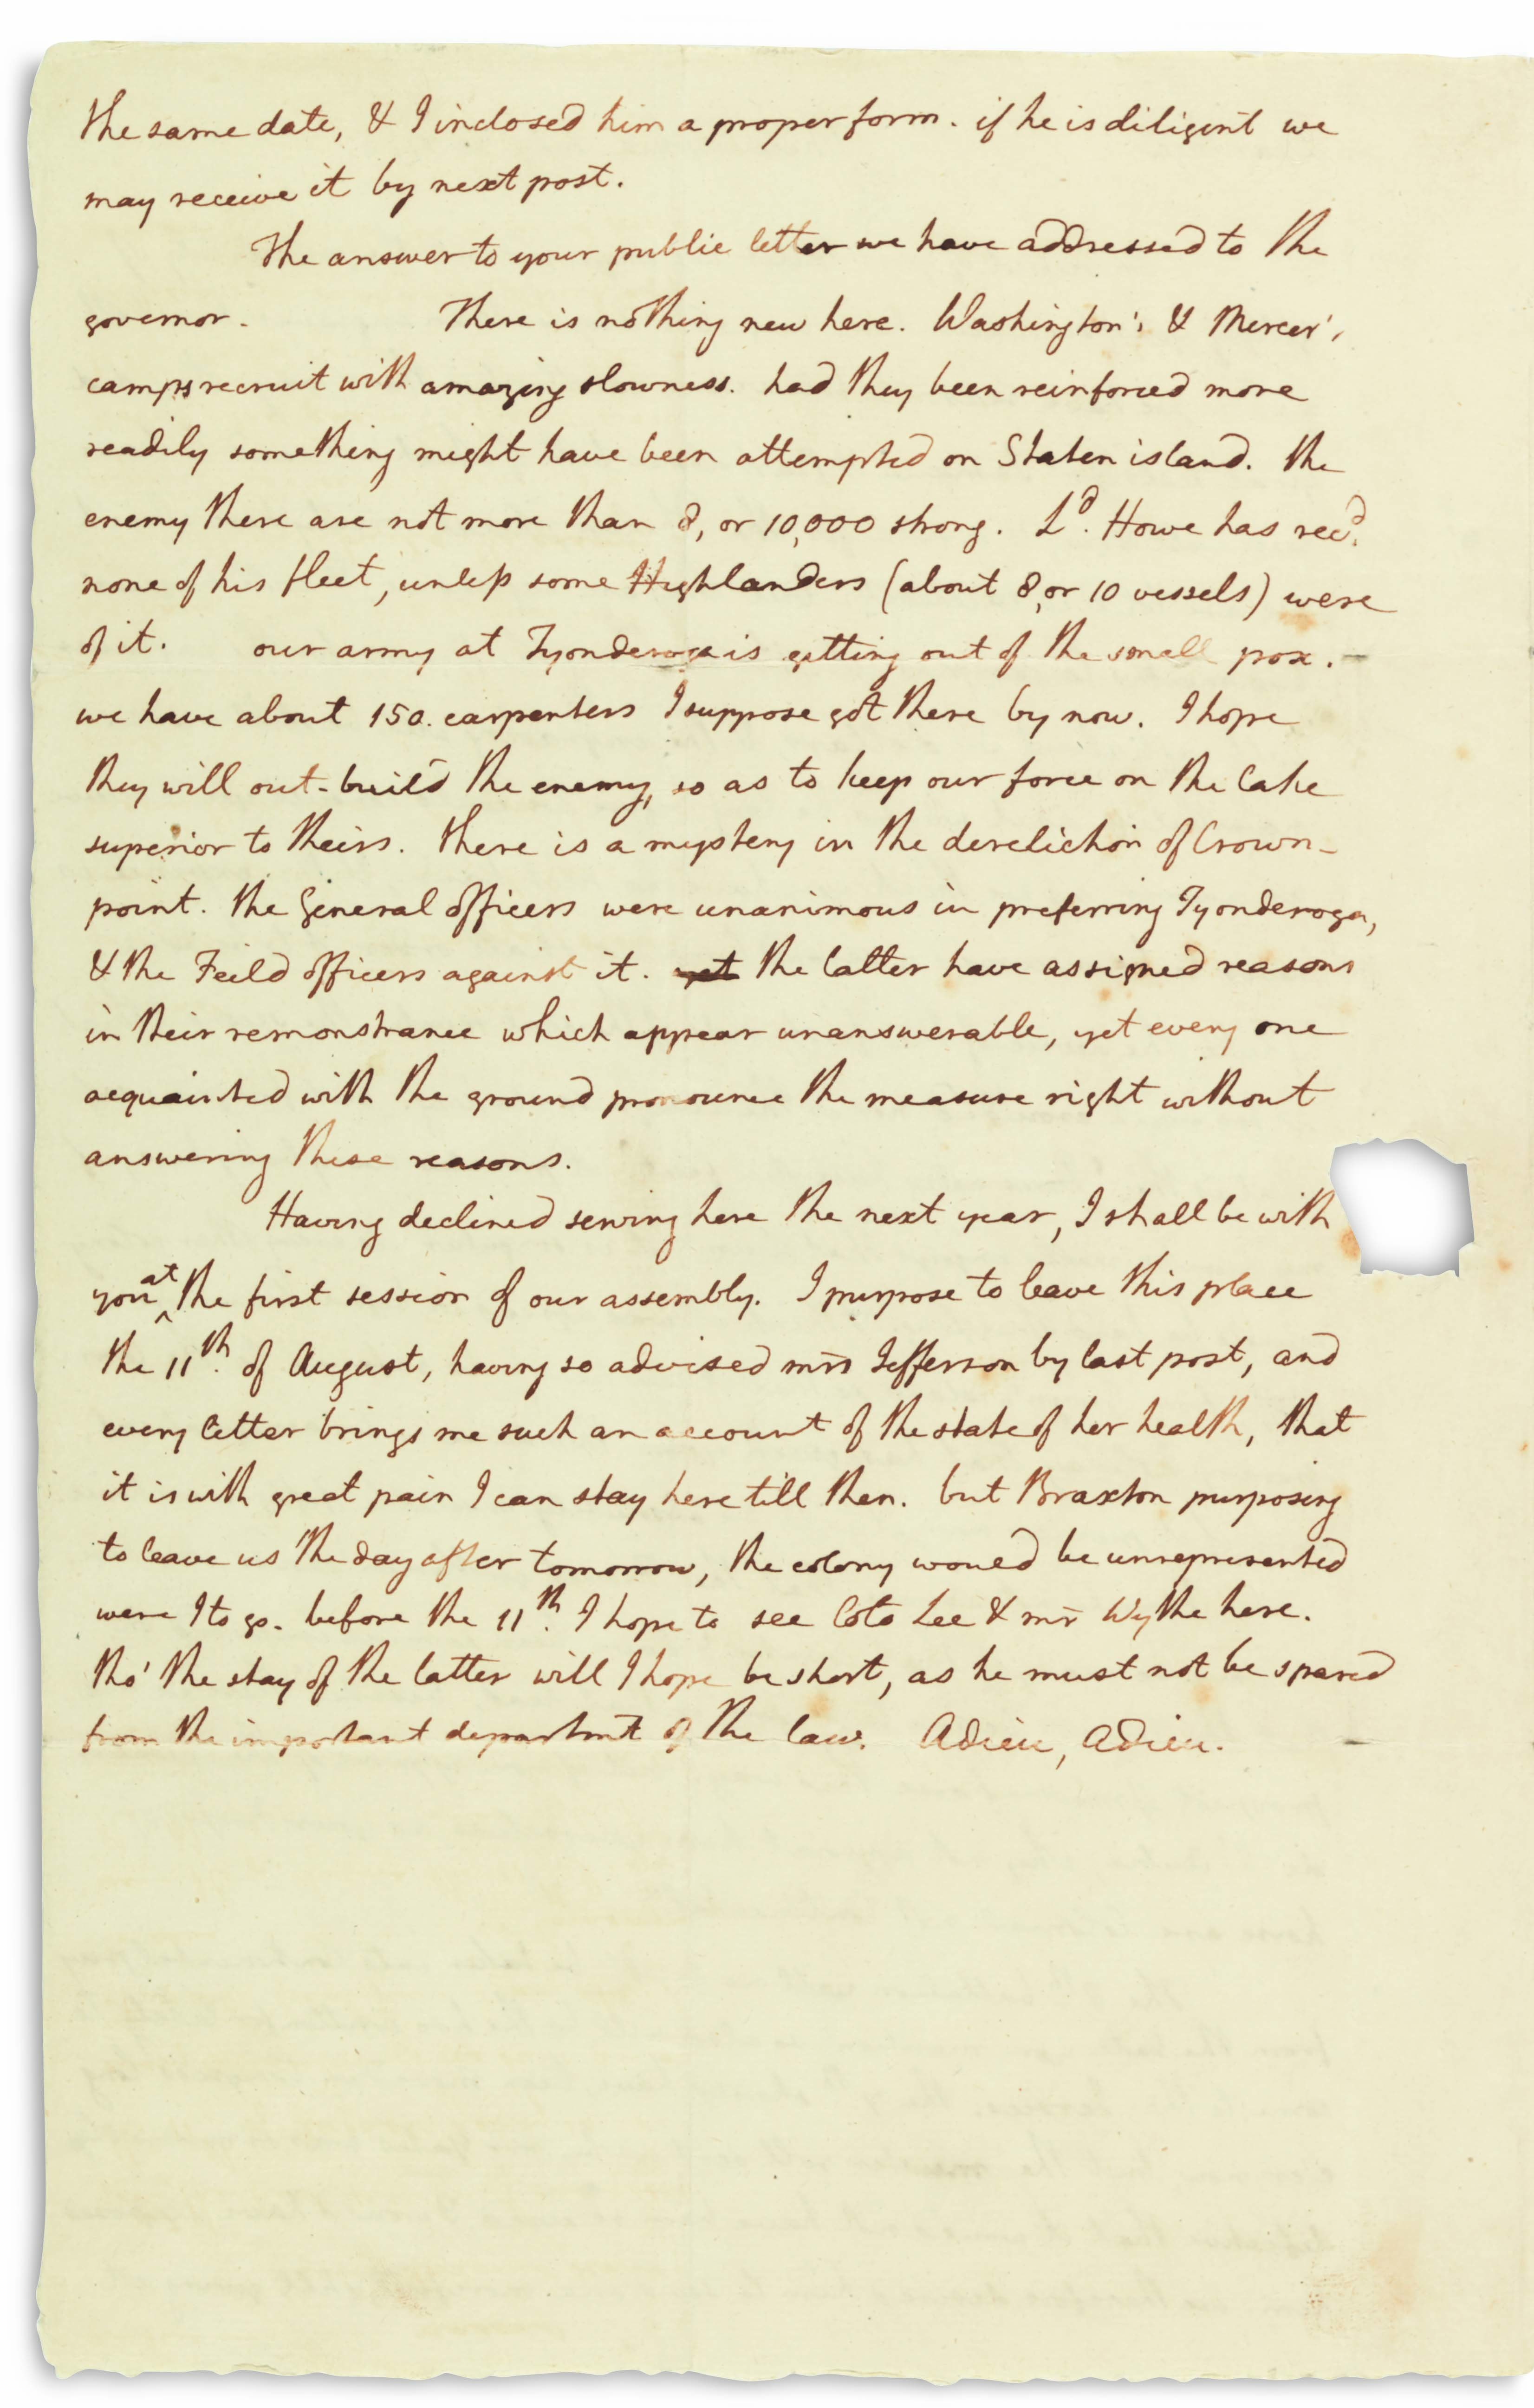 the same date, & I inclosed him a proper form. if he is diligent we
may receive it by next post.
The answer to your public letter we have addressed to the
governor. There is nothing new here. Washington's & Mercer's
camps recruit with amazing slowness. had they been reinforced more
readily something might have been attempted on Staten island. the
enemy there are not more than 8, or 10,000 strong. Ld. Howe has recd.
none of his fleet, unless some Highlanders (about 8, or 10 vessels) were
of it. our army at Tyonderoga is getting out of the small pox. —
we have about 150. carpenters I suppose got there by now. I hope
they will out-build the enemy, so as to keep our force on the lake
superior to theirs. there is a mystery in the dereliction of Crown-
point. the General officers were unanimous in preferring Tyonderoga,
& the Feild officers against it. yet the latter have assigned reasons
in their remonstrance which appear unanswerable, yet every one
acquainted with the ground pronounce the measure right without
answering these reasons.
Having declined serving here the next year, I shall be with
you at the first session of our assembly. I purpose to leave this place
the 11th. of August, having so advised mrs Jefferson by last post, and
every letter brings me such an account of the state of her health, that
it is with great pain I can stay here till then. but Braxton purposing
to leave us the day after tomorrow, the colony would be unrepresented
were I to go. before the 11th. I hope to see Colo Lee & mr Wythe here.
tho' the stay of the latter will I hope be short, as he must not be spared
from the important departmt of the law. Adieu, adieu.